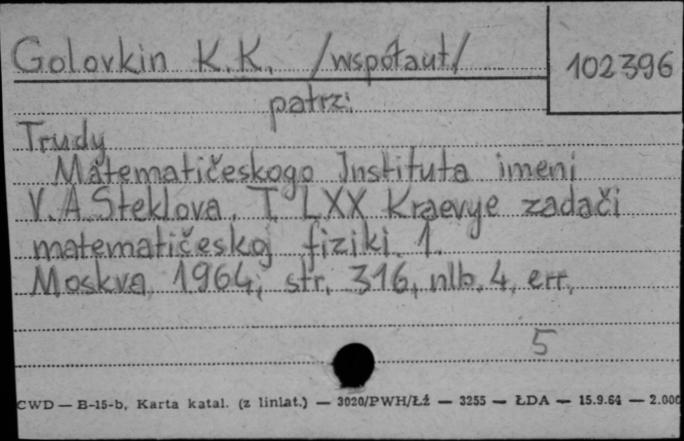 Golovkin K.K. /współaut/
102396
patrz:
Trudy
Matematičeskogo Instituta imeni
V.A. Steklova. T. LXX Kraevye zadači
matematičeskoj fiziki. 1.
Moskva 1964, str. 316, nlb. 4, err.
5
CWD — B-15-b, Karta katal. (z liniat.) — 3020/PWH/Łź — 3255 — ŁDA — 15.9.64 — 2.000